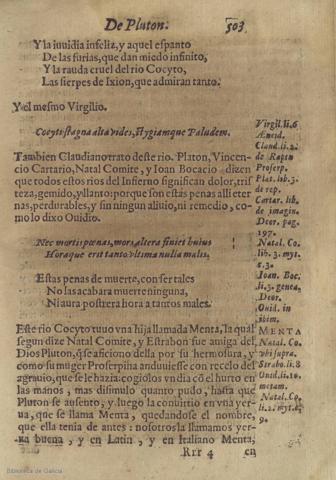 De Pluton.
503
Y la iuuidia infeliz, y aquel espanto
De las furias, que dan miedo infinito,
Y la rauda cruel del rio Cocyto,
Las sierpes de Ixion, que admiran tanto.
Y el mesmo Virgilio.
Cocyti stagna alta vides, stygiamque Paludem.
Tambien Claudiano trato deste rio. Platon, Vincen-
cio Cartario, Natal Comite, y Ioan Bocacio dizen
que todos estos rios del Infierno significan dolor, tris
teza, gemido, y llanto: porque son estas penas all eter
nas, perdurables, y sin ningun aliuio, ni remedio, co-
mo lo dixo Ouidio.
Nec mortis pœnas, mors altera finiet huius
Horaque erit tantis vltima nulla malis.
Estas penas de muerte, con ser tales
No las acabara muerte ninguna,
Ni aura postrera hora a tantos males.
Este rio Cocyto tuuo vna hija llamada Menta, la qual
segun dize Natal Comite, y Estrabon fue amiga del
Dios Pluton, q̃ se aficiono della por su hermosura, y
como su muger Proserpina anduuiesse con recelo del
agrauio, que se le hazia: cogiolos vn dia cõ el hurto en
las manos, mas disimulo quanto pudo, hasta que
Pluton se ausento; y luego la conuirtio en vna yer-
ua, que se llama Menta, quedandose el nombre,
que ella tenia de antes: nosotros la llamamos yer-
ua buena, y en Latin, y en Italiano Menta,
Rrr 4
en
Virgil. li. 6
Æneid.
Claud. li. 2.
de Raptu
Proserp.
Plat. lib. 3.
de rep.
Cartar. lib.
de imagin.
Deor. pag.
197.
Natal. Co.
lib. 3. myt.
c. 3.
Ioan. Boc.
li. 3. genea.
Deor.
Ouid. in
ibim.
MENTA
Natal. Co.
vbi supra.
Strabo. li. 8
Ouid. li. 10.
metam.
Natal. Co.
li. 2. myt. c.
9.
Biblioteca de Galicia